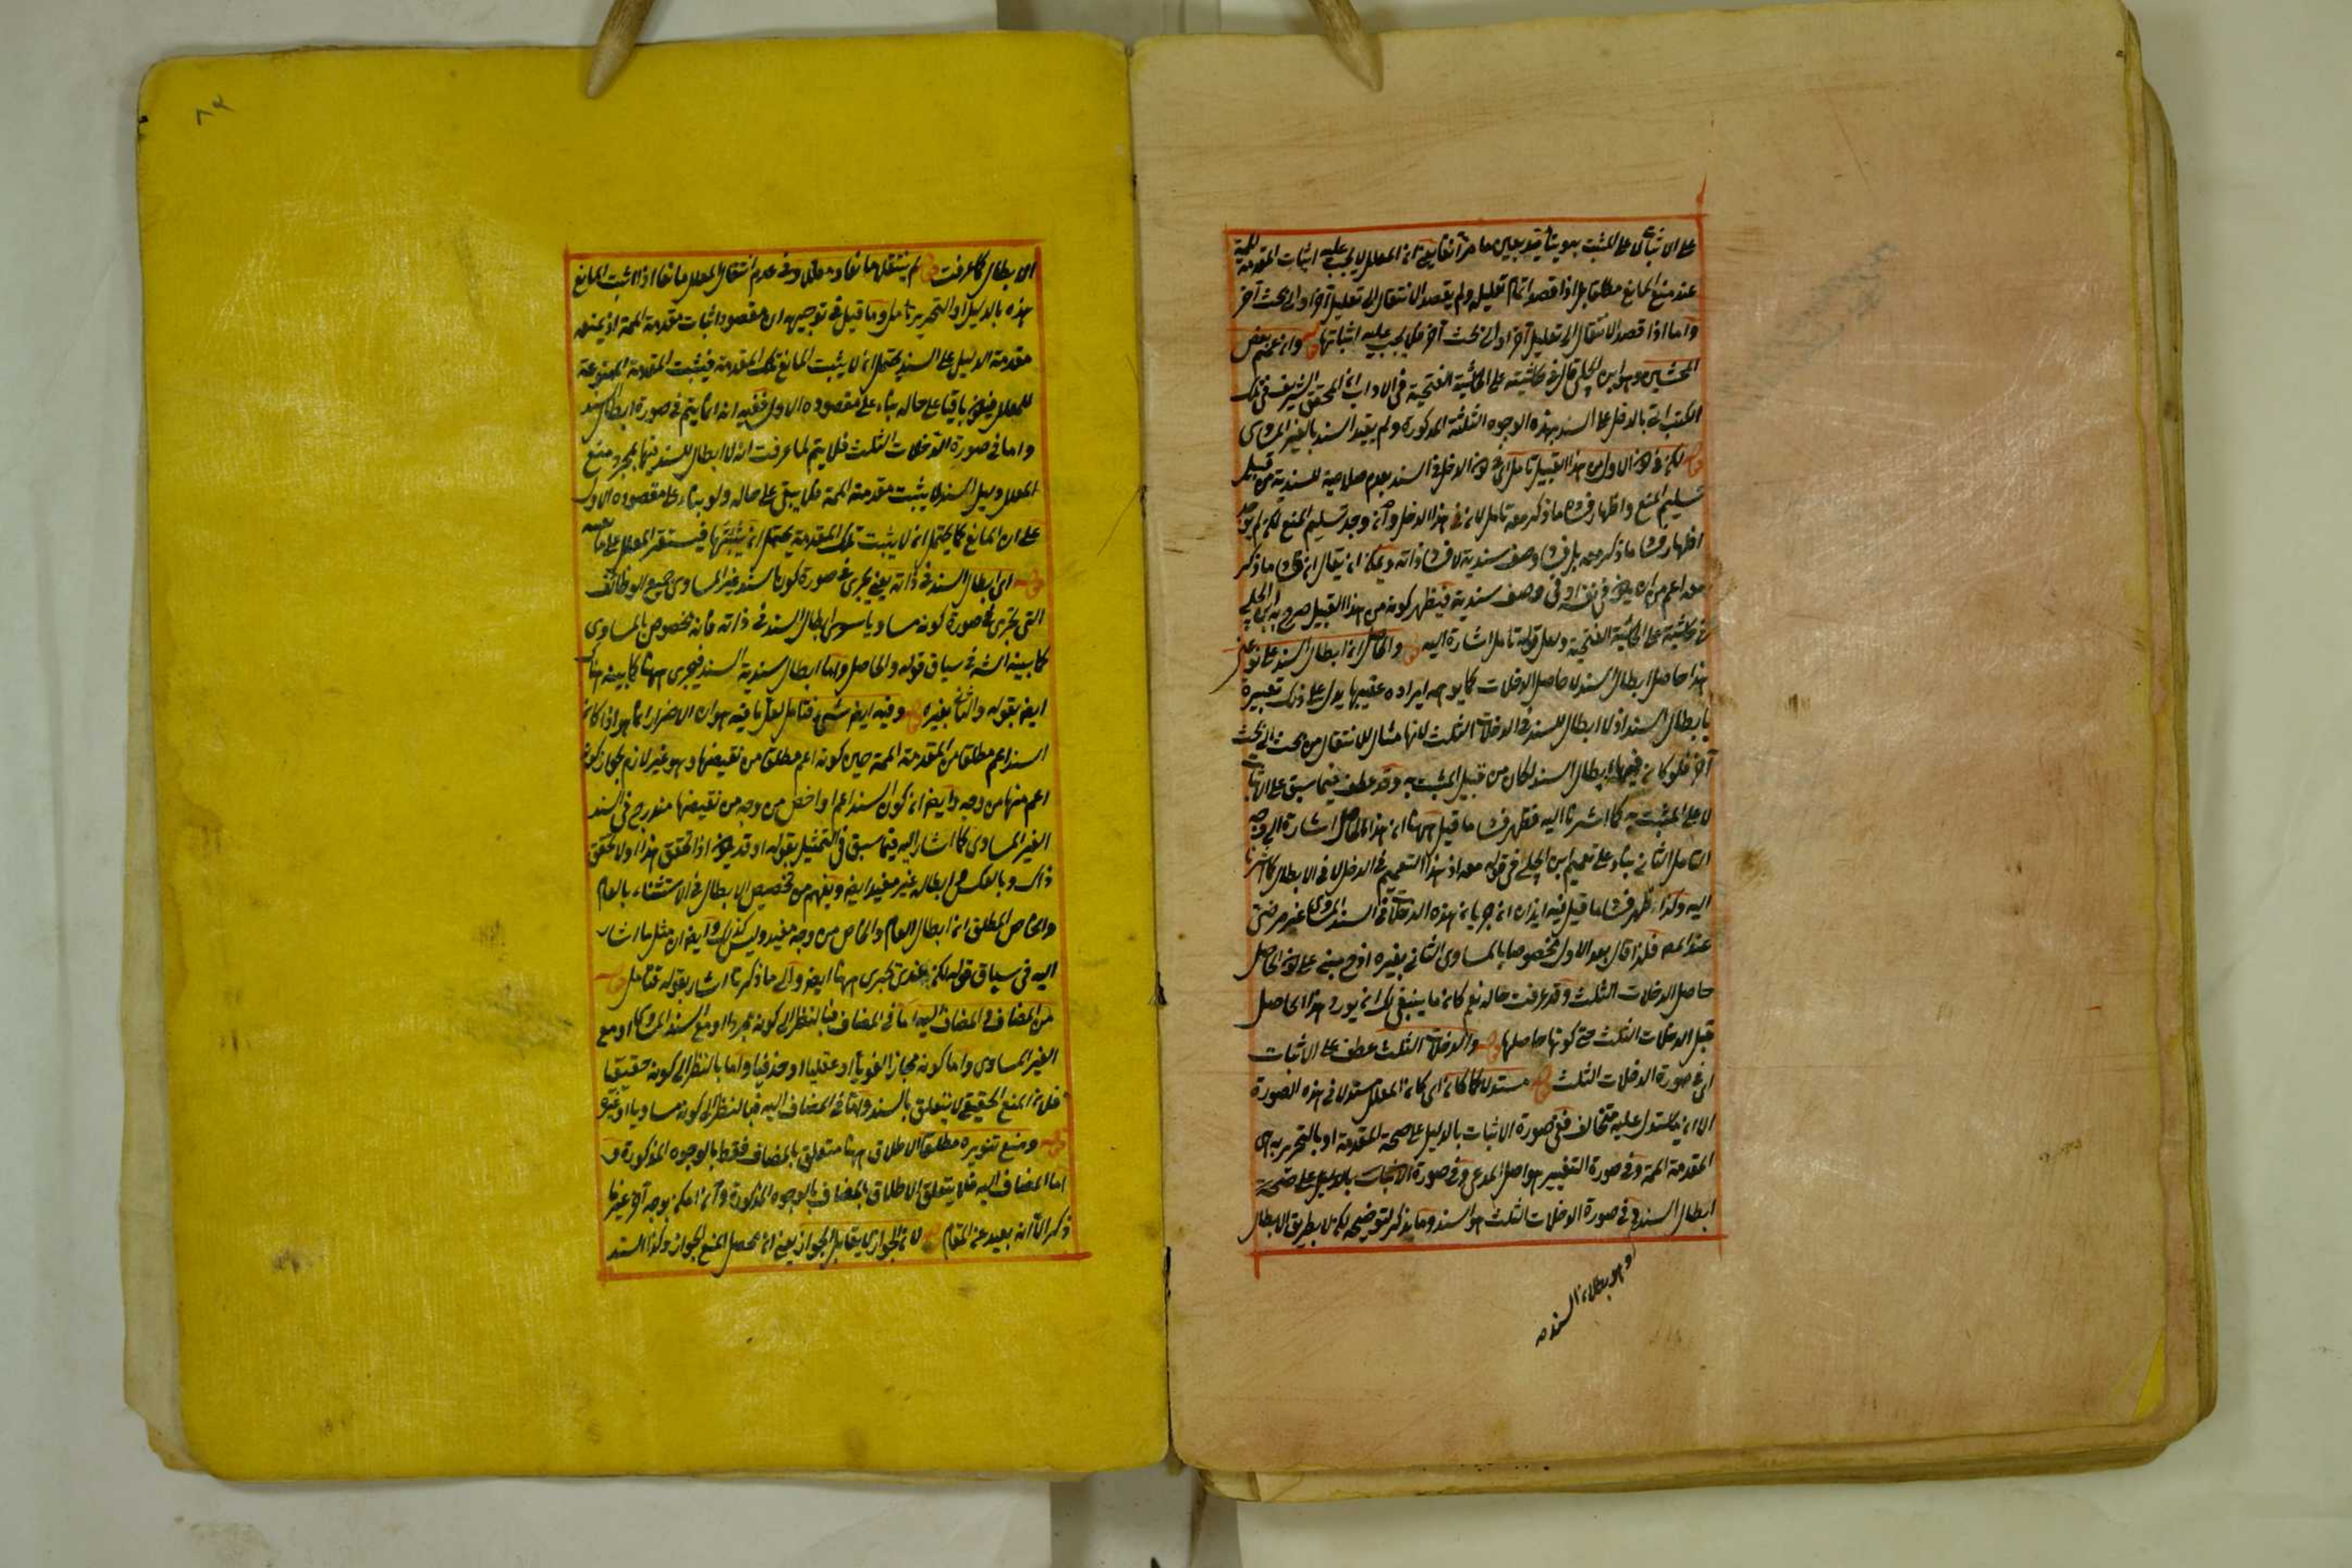 على الاثبات لا على المثبت به ويتأيد بعين ما مر آنفا يعني ان المعلل لا يجب عليه اثبات المقدمة الممة
عند منع المانع مطلقا بل اذا قصد اتمام تعليله ولم يقصد الانتقال الى تعليل آخر او الى بحث آخر
واما اذا قصد الانتقال الى تعليل آخر او الى بحث آخر فلا يجب عليه اثباتها قوله وان عمم بعض
المحشين وهو ابن الجلبي قال في حاشيته على الحاشية الفتحية في الاداب ان المحقق الشريف في تلك
الكتب اتى بالدخل على السند بهذه الوجوه الثلثة المذكورة ولم يقيد السند بالغير المساوى
قوله لكن في كون الاول من هذا القبيل تأمل اى في كون الدخل في السند بعدم صلاحية للسندية من قبيل
تسليم المنع واظهار فساد ما ذكر معه تأمل لان في هذا الدخل وان وجد تسليم المنع لكن لم يوجد
اظهار فساد ما ذكر معه بل فساد وصف سندية لا فساد ذاته ويمكن ان يقال ان فساد ما ذكر
معه اعم من ان يكون في نفسه او في وصف سندية فيظهر كونه من هذا القبيل صرح به ابن الجلبي
في حاشيته على الحاشية الفتحية ولعل قوله تأمل اشارة اليه قوله والحاصل ان ابطال السند على نوعين
هذا حاصل ابطال السند لا حاصل الدخلات كما يوهمه ايراده عقيبها يدل على ذلك تعبيره
بابطال السند اذ لا ابطال للسند في الدخلات الثلث لانها مثال للانتقال من بحث الى بحث
آخر فلو كان فيها ابطال السند لكان من قبيل المثبت به وقد عطف فيما سبق على الاثبات
لا على المثبت به كما اشرنا اليه فظهر فساد ما قيل ههنا ان هذا الحاصل اشارة الى وجه
التأمل الثاني بناء على تعميم ابن الجلبي في قوله معه اذ هذا التعميم في الدخل لا في الابطال كما اشرنا
اليه وكذا ظهر فساد ما قيل فيه ايذان ان جريان هذه الدخلات في السند المساوى غير مرضى
عند المص فلذا قال بعد الاول مخصوصا بالمساوى الثاني بغيره اذ هو مبنى على كون الحاصل
حاصل الدخلات الثلث وقد عرفت حاله نعم كان ما ينبغي لك ان يورد هذا الحاصل
قبل الدخلات الثلث حتى كونها حاصلها قوله والدخلات الثلث عطف على الاثبات
اى في صورة الدخلات الثلث قوله مستدلا كما كان اى كان المعلل مستدلا في هذه الصورة
الا ان المستدل عليه متخالف ففى صورة الاثبات بالدليل على صحة المقدمة او بالتحرير به هى
المقدمة الممة وفي صورة التغيير هو اصل المدعى وفي صورة الاثبات بالدليل على صحة
ابطال السند وفي صورة الدخلات الثلث هو السند وما يذكر لتوضيحه لكن لا بطريق الابطال
وهو بطلان السند
الابطال كما عرفت قوله لم ينتقل مانعا ومعللا وفي عدم انتقال المعلل مانعا اذا اثبت المانع
هذه بالدليل او التحرير تأمل وما قيل في توجيهه ان مقصوده اثبات مقدمة الممة اذ يمنعه
مقدمة الدليل على السند يحتمل ان لا يثبت المانع تلك المقدمة فيثبت المقدمة الممنوعة
للمعلل فيكون باقيا على حاله بناء على مقصوده الاول ففيه انه انما يتم في صورة ابطال السند
واما في صورة الدخلات الثلث فلا يتم لما عرفت ان لا ابطال للسند فيها بمجرد منع
المعلل دليل السند لا يثبت مقدمته الممة فلا يبقى على حاله ولو بناء على مقصوده الاول
على ان المانع كما يحتمل ان لا يثبت تلك المقدمة يحتمل ان يثبتها فيستقر المعلل على مانعيته
قوله اى ابطال السند في ذاته يعنى يجرى في صورة كون السند غير المساوى جميع الوظائف
التي تجرى في صورة كونه مساويا سوى ابطال السند في ذاته فانه مخصوص بالمساوى
كما بينه الش في سياق قوله والحاصل واما ابطال سندية السند فيجرى ههنا كما بينه هناك
ايضا بقوله والثاني بغيره قوله وفيه ايضا شئ فتأمل لعل ما فيه هو ان الاضرار انما هو اذا كان
السند اعم مطلقا من المقدمة الممة حين كونه اعم مطلقا من نقيضها وهو غير لازم لجواز كونه
اعم منها من وجه وايضا ان كون السند اعم او اخص من وجه من نقيضها مندرج في السند
الغير المساوى كما اشار اليه فيما سبق في التمثيل بقوله او قد يكون اذا تحقق هذا ولا تحقق
ذاك وبالعكس وابطاله غير مفيد ايضا ويفهم من تخصيص الابطال في الاستثناء بالعام
والخاص المطلق ان ابطال العام والخاص من وجه مفيد وليس كذلك وايضا ان مثل ما اشار
اليه في سياق قوله لكن عندى تجرى ههنا ايضا والى ما ذكرنا اشار بقوله فتأمل قوله
من المضاف والمضاف اليه اما في المضاف فبالنظر الى كونه مجردا او مع السند المساوى او مع
الغير المساوى واما كونه مجازا لغويا او عقليا او حذفيا واما بالنظر الى كونه حقيقيا
فلان المنع الحقيقي لا يتعلق بالسند واما في المضاف اليه فبالنظر الى كونه مساويا او غيره
قوله ومنع تنويره مطلقا الاطلاق ههنا متعلق بالمضاف فقط بالوجوه المذكورة و
اما المضاف اليه فلا يتعلق الاطلاق بالمضاف بالوجوه المذكورة وان امكن بوجه آخر غير ما
ذكر الا انه بعيد عن المقام قوله لان الجواز لا يقابل الجواز يعنى ان محصل المنع الجواز وكذا السند